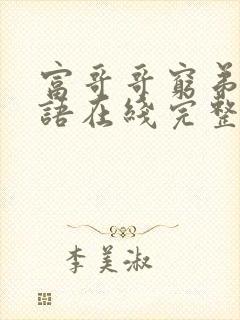 富哥哥窮弟
語在綫完整
李美淑